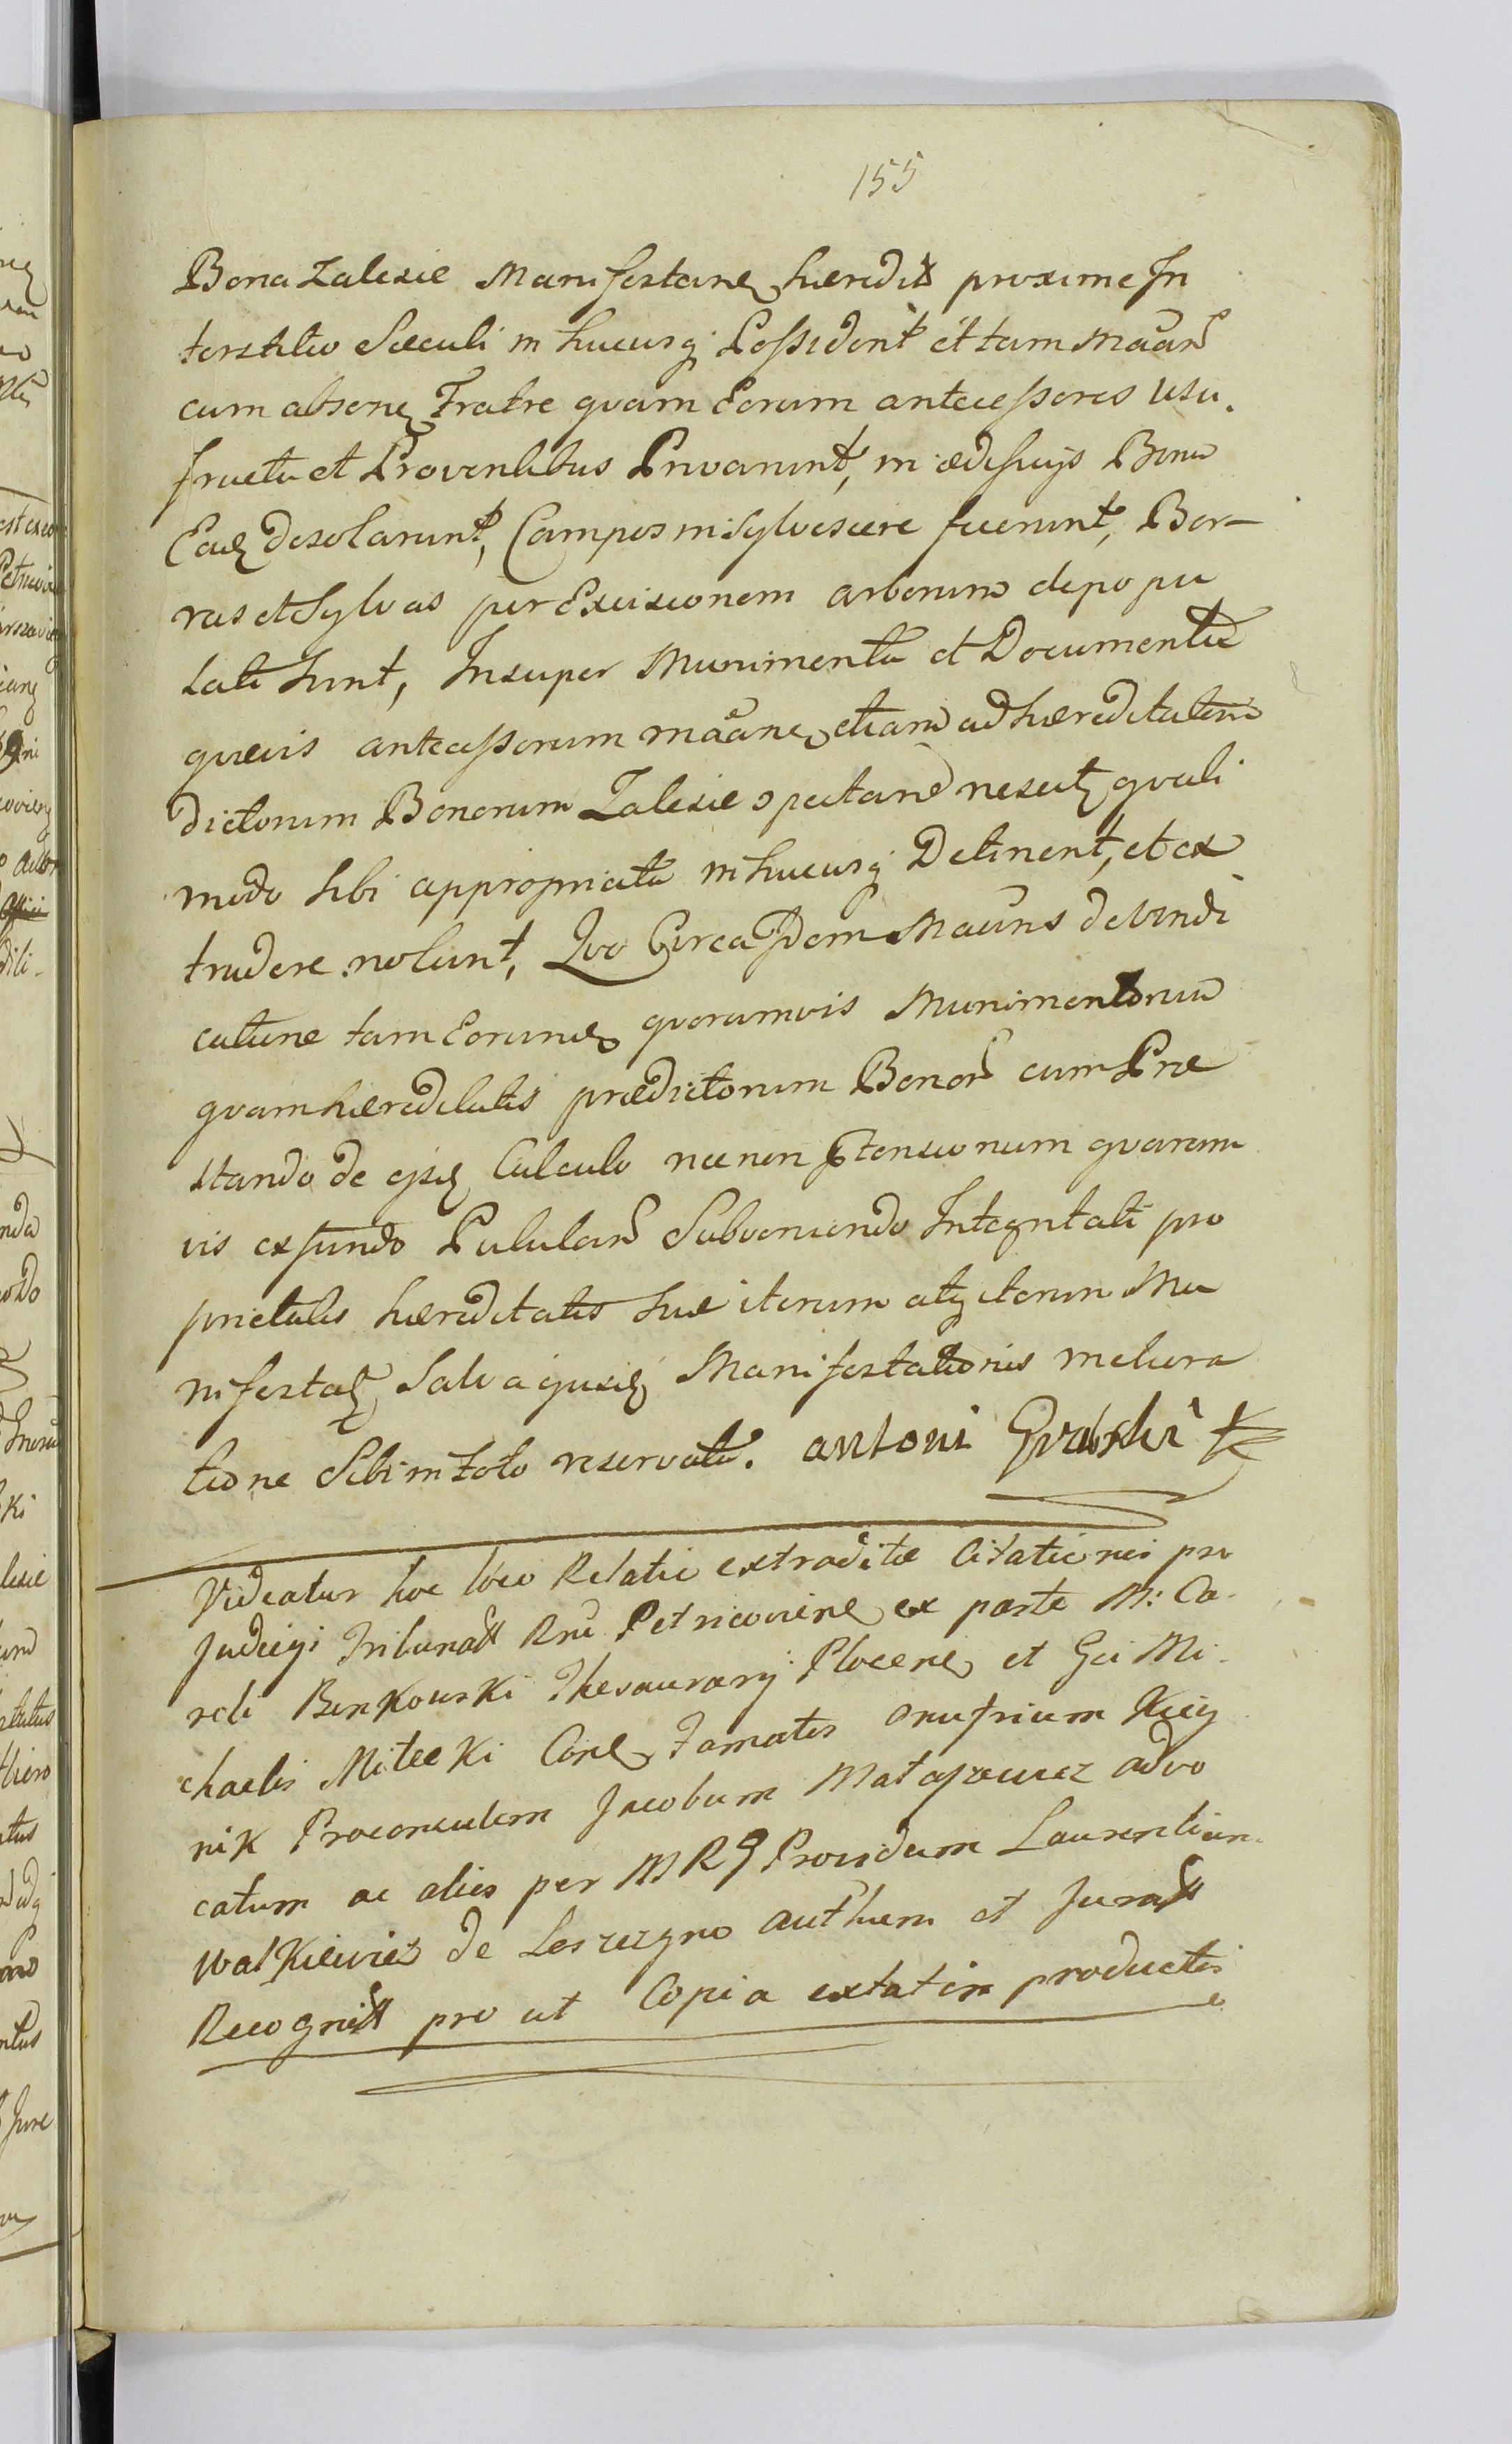 155
Bona Zalesie Manifestanē hæredit proxime In
terstitio Sæculi in hucusq Possident et tam Maān
cum absenē Fratre qvam Eorum antecessores Usu.
fructu et Proventibus Privarunt, in ædificijs Bona
Eadē desolarunt, Campos insylvescere fecerunt, Bor-
ras et Sylvas per Excisionem arborum depopu
lati sunt, Insuper Munimenta et Documenta
qvævis antecessorum maānē etiam ad hæreditatem
dictorum Bonorum Zalesie spectanā nescitʒ qvali
modo sibi appropriata in hucusq Detinent, et ex
trudere nolunt, Qvo Circa Idem Maāns de vindi
catione tam Eorundē qvorumvis Munimentorum
qvam hæreditatis prædictorum Bonor cum Præ
stando de ejsdē Calculo nec non Ptensionum qvarum
vis ex fundo Pululan Subveniendo Integritati pro
prietatis hæreditatis suæ iterum atq iterum Ma
nifestatʒ, Salva ejusdē Manifestationis meliora
tione Sibi in toto reservata. antoni Grabski
Videatur hoc loco Relatio extraditæ Citationis pro
Judicijs Tribunall Rni Petricoviene ex parte M: Ca-
roli Binkowski Thesaurarij Plocenē et Gsi Mi-
chaelis Mitecki Conē Famatos Onufrium Kięż
nik Proconsulem Jacobum Matajewicz advo
catum ac alios per M R G Providum Laurentium
Walkiewicz de Leszczyno authem et Jurall
Recognitt pro ut Copia extat in productis